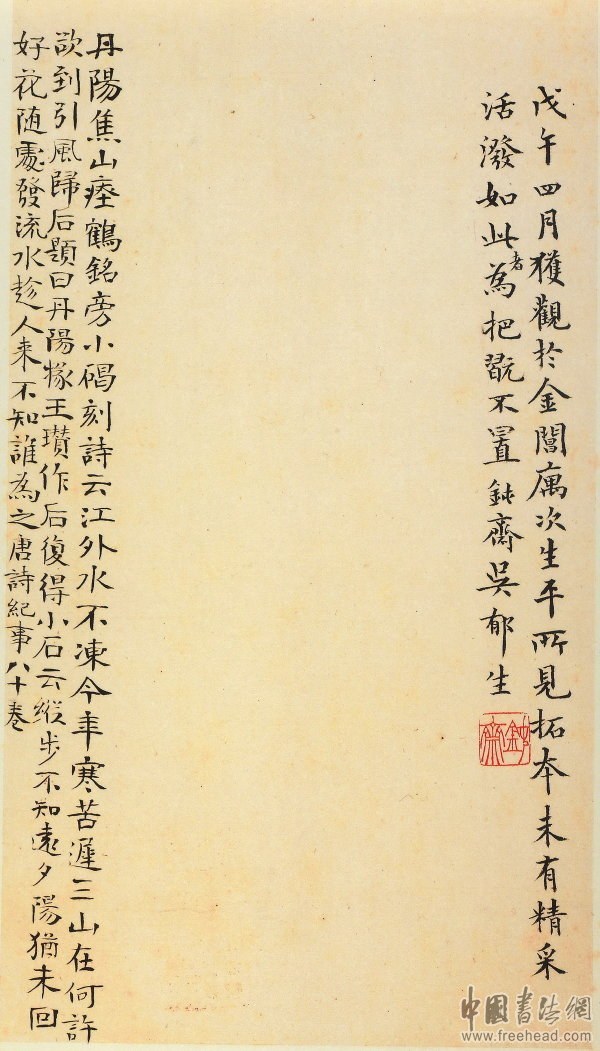 戊午四月獲觀於金閶庽次生平所見拓本未有精采
活潑如此者為把翫不置鈍齋吳郁生
鈍齋
丹陽焦山瘞鶴銘旁小碣刻詩云江外水不凍今年寒苦遲三山在何許
欲到引風歸后題曰丹陽掾王瓚作后復得小石云縱步不知遠夕陽猶未回
好花随處發流水趁人来不知誰為之唐詩紀事八十卷
中國書法網
www.freehead.com